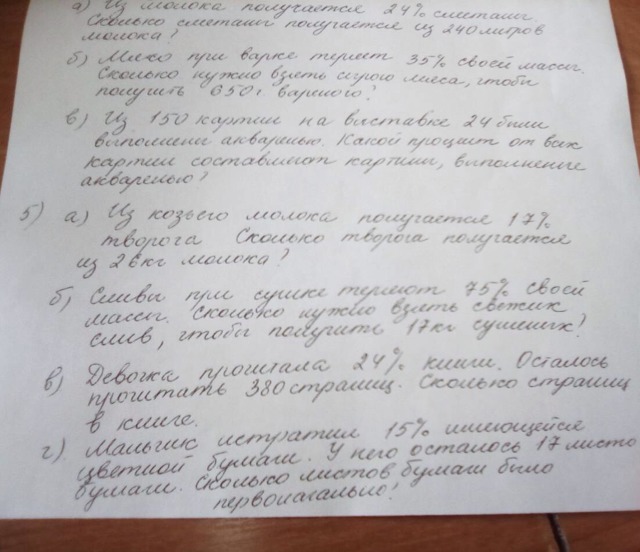 а) Из молока получается 24% сметаны.
Сколько сметаны получается из 240 литров
молока?
б) Мясо при варке теряет 35% своей массы.
Сколько нужно взять сырого мяса, чтобы
получить 650г вареного?
в) Из 150 картин на выставке 24 были
выполнены акварелью. Какой процент от всех
картин составляют картины, выполненные
акварелью?
5) а) Из козьего молока получается 17%
творога Сколько творога получается
из 26кг молока?
б) Сливы при сушке теряют 75% своей
массы. Сколько нужно взять свежих
слив, чтобы получить 17кг сушеных?
в) Девочка прочитала 24% книги. Осталось
прочитать 380 страниц. Сколько страниц
в книге.
г) Мальчик истратил 15% имеющейся
цветной бумаги. У него осталось 17 листо
бумаги. Сколько листов бумаги было
первоначально?